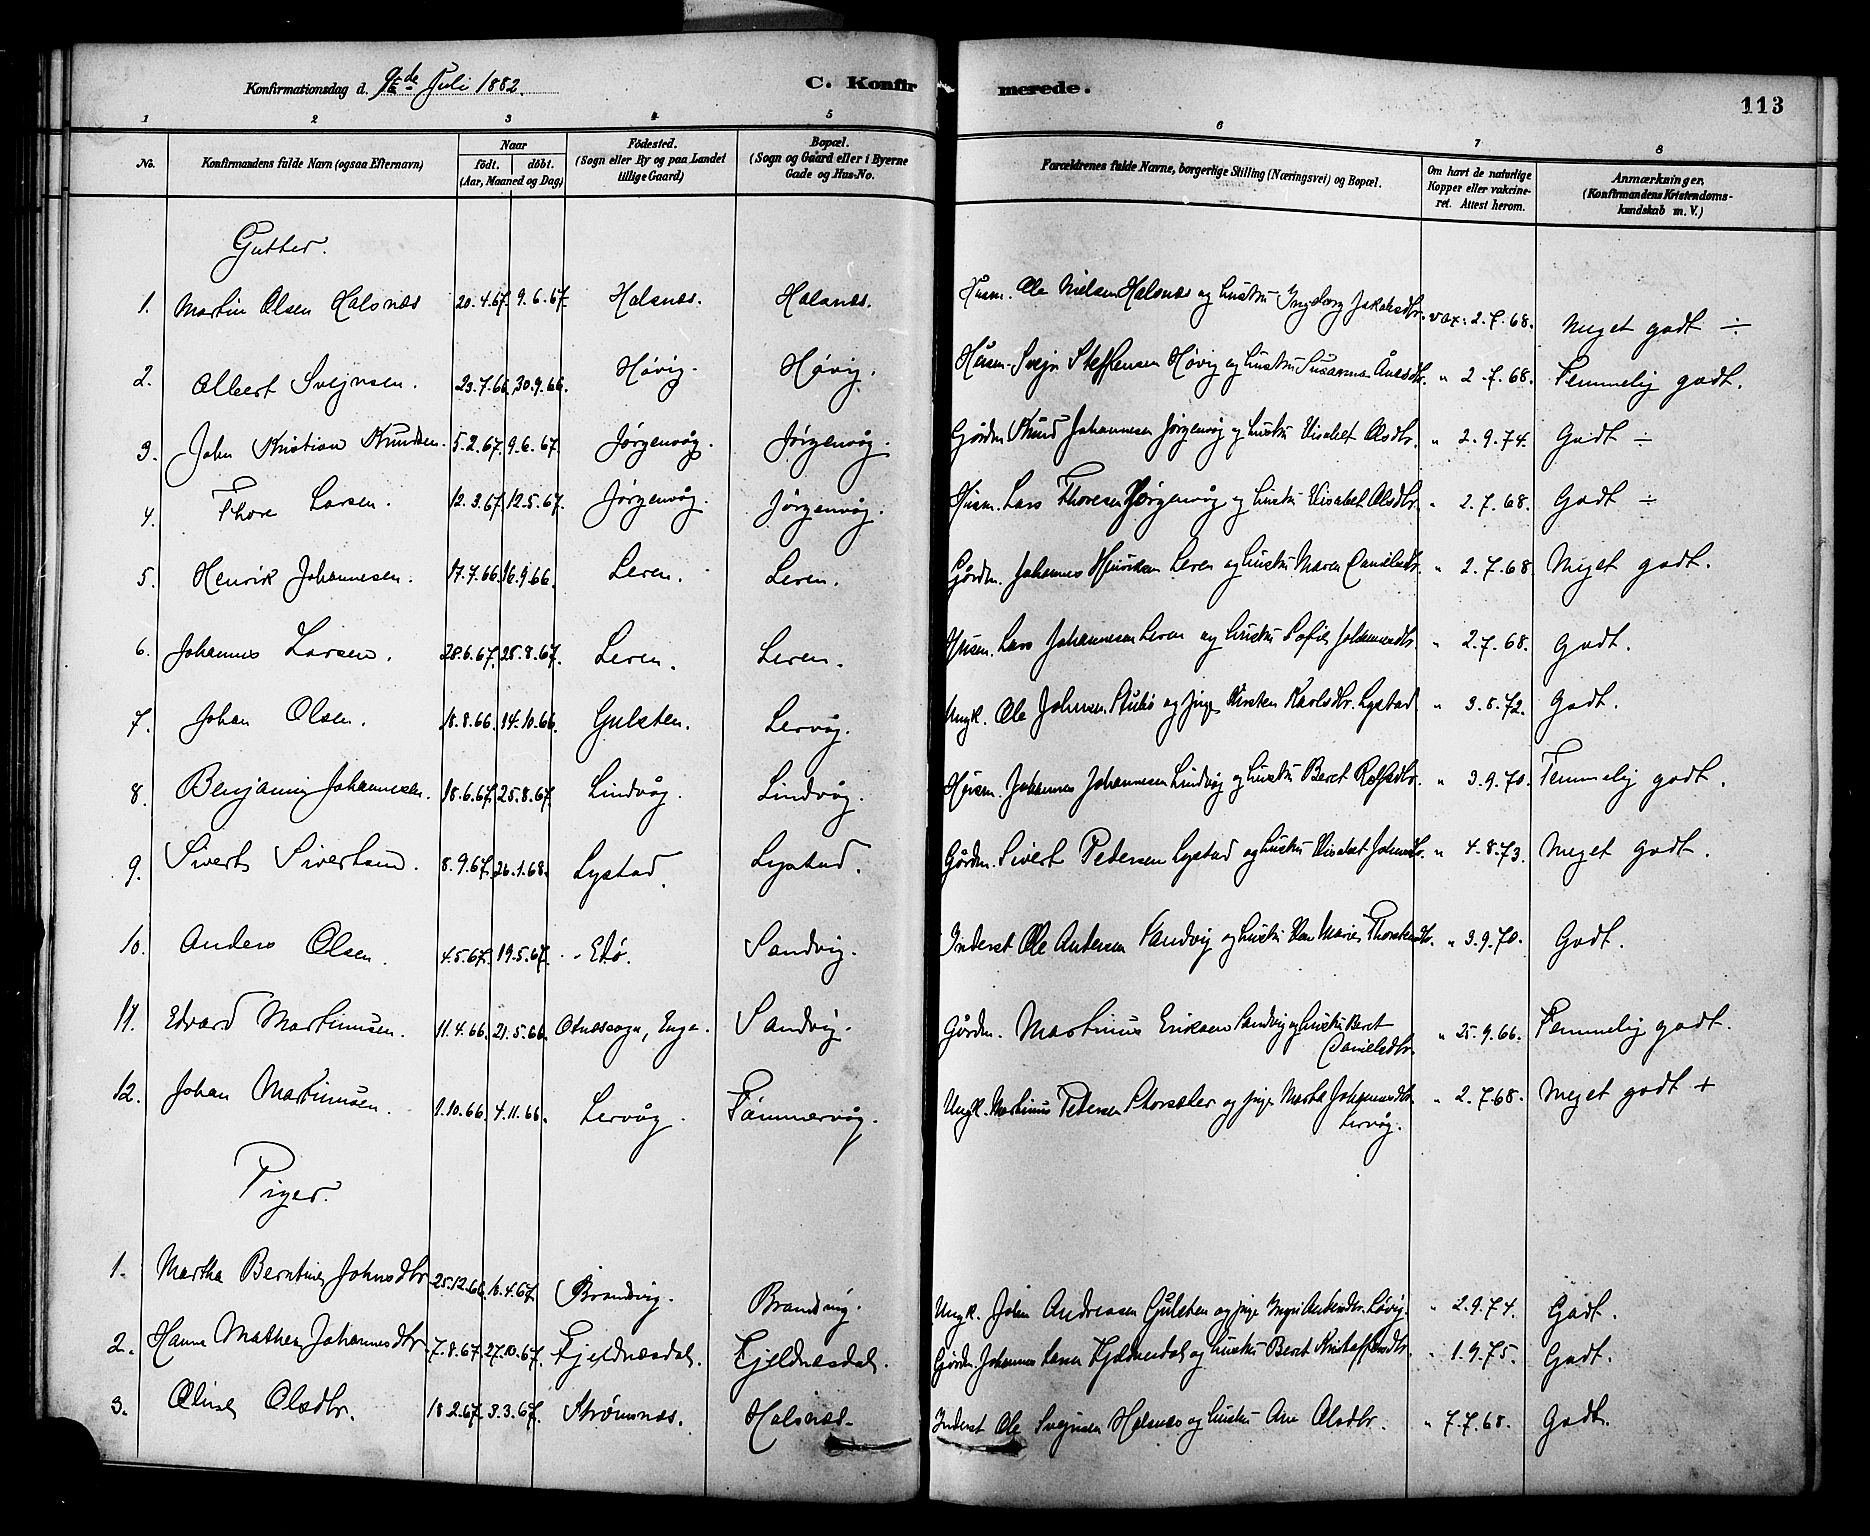 Konfirmationsdag d. 9de Juli 1882.
C. Konfirmerede.
113
1 2 3 4 5 6 7 8
No.
Konfirmandens fulde Navn (ogsaa Efternavn)
Naar
födt. döbt.
(Aar, Maaned og Dag)
Födested.
(Sogn eller By og paa Landet
tillige Gaard)
Bopæl.
(Sogn og Gaard eller i Byerne
Gade og Hus-No.
Forældrenes fulde Navne, borgerlige Stilling (Næringsvei) og Bopæl.
Om havt de naturlige
Kopper eller vakcine-
ret. Attest herom.
Anmærkninger,
(Konfirmandens Kristendoms-
kundskab m. V.)
Gutter.
1. Martin Olsen Halsnæs 20.4.67. 9.6.67. Halsnæs. Halsnæs. Husm. Ole Nielsen Halsnæs og hustru Ingeborg Jakobsdtr. vax: 2.7.68. Meget godt ÷
2. Albert Svejnsen. 23.7.66. 30.9.66. Høvig. Høvig. Husm. Svejn Steffensen Høvig og hustru Susanna Ånesdtr. " 2.7.68. Temmelig godt.
3. John Kristian Knudsen. 5.2.67. 9.6.67. Jørgenvåg. Jørgenvåg. Gårdm. Knud Johannesen Jørgenvåg og hustru Elisabet Olsdtr. " 2.9.74. Godt ÷
4. Thore Larsen. 12.3.67. 12.5.67. Jørgenvåg. Jørgenvåg. Husm. Lars Thoresen Jørgenvåg og hustru Elisabet Olsdtr. " 2.7.68. Godt ÷
5. Henrik Johannesen. 17.7.66. 16.9.66. Leren. Leren. Gårdm. Johannes Henriksen Leren og hustru Maren Danielsdtr. " 2.7.68 Meget godt.
6. Johannes Larsen. 28.6.67. 25.8.67. Leren. Leren. Husm. Lars Johannesen Leren og hustru Sofie Johannesdtr. " 2.7.68. Godt.
7. Johan Olsen. 18.8.66. 14.10.66. Gulsten. Lervåg. Ungk. Ole Johnsen Stubø og pige Kirsten Karlsdtr. Lystad " 3.8.72. Godt.
8. Benjamin Johannesen. 18.6.67. 25.8.67. Lindvåg. Lindvåg. Husm. Johannes Johannesen Lindvåg og hustru Beret Rolfsdtr. " 3.9.70. Temmelig godt.
9. Sivert Sivertsen. 8.9.67. 26.1.68. Lystad. Lystad. Gårdm. Sivert Pedersen Lystad og hustru Elisabet Johnsdtr. " 4.8.73. Meget godt.
10. Anders Olsen. 4.5.67. 19.5.67. Edø. Sandvig. Inderst Ole Andersen Sandvig og hustru Marie " 3.9.70. Godt.
11. Edvard Martinusen. 11.4.66. 21.5.66. Enge. Sandvig. Gårdm. Martinus Eriksen Sandvig og hustru Beret " 25.9.66. Temmelig godt.
Danielsdtr.
12. Johan Martinusen. 1.10.66. 4.11.66. Lervåg. Tømmervåg. Ungk. Martinus Pedersen Storsæter og pige Marta Johannesdtr. " 2.7.68. Meget godt +
Lervåg.
Piger.
1. Martha Berntine Johnsdtr. 25.12.66. .4.67. Brandvig. Brandvig. Ungk. John Andreasen Gulsten og pige Ingri Løvig. " 2.9.74. Godt.
2. Hanna Mathea Johannesdtr. 7.8.67. 27.10.67. Fjeldnæsdal. Fjeldnæsdal. Gårdm. Johannes og hustru Beret Kristoffersdtr. " 1.9.75. Godt.
3. Oline Olsdtr. 18.2.67. 3.3.67. Strømsnæs. Halsnæs. Inderst Ole Svejnsen Halsnæs og hustru Ane Olsdtr. " 7.7.68. Godt.